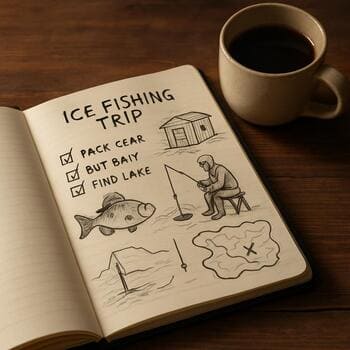 ICE FISHING
TRIP
PACK CEAR
BUT BAIY
FIND LAKE